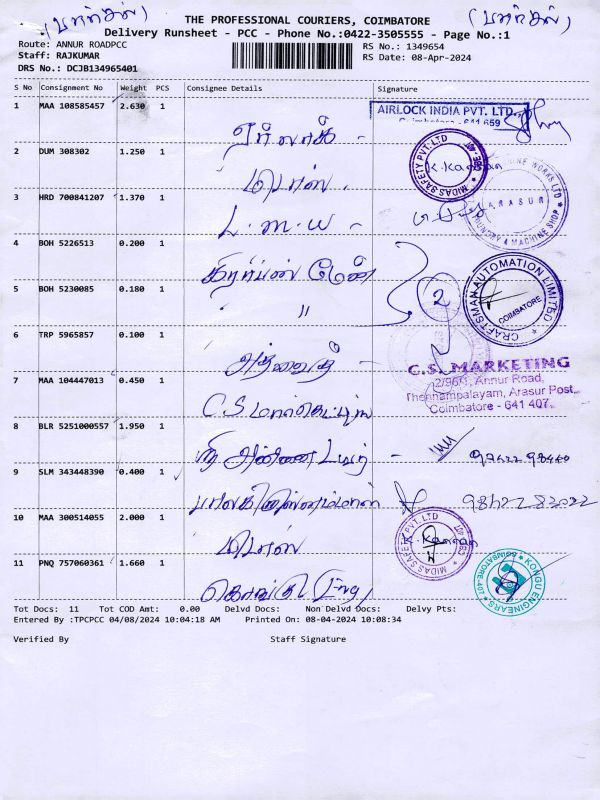 (பார்சல்) THE PROFESSIONAL COURIERS, COIMBATORE (பார்சல்)
Delivery Runsheet - PCC - Phone No.:0422-3505555 - Page No.:1
Route: ANNUR ROADPCC RS No.: 1349654
Staff: RAJKUMAR RS Date: 08-Apr-2024
DRS No.: DCJB134965401
S No Consignment No Weight PCS Consignee Details Signature
1 MAA 108585457 2.630 1 ஏர்லாக் - AIRLOCK INDIA PVT. LTD.
Coimbatore - 641 659
2 DUM 308302 1.250 1 மிடாஸ் MIDAS SAFETY PVT. LTD K. Kannan
3 HRD 700841207 1.370 1 L.M.W - MACHINE WORKS LTD ARASUR FOUNDRY & MACHINE SHOP
4 BOH 5226513 0.200 1
5 BOH 5230085 0.180 1 " 2 CRAFTSMAN AUTOMATION LIMITED COIMBATORE
6 TRP 5965857 0.100 1 அத்வைத் -
C.S. MARKETING
Annur Road,
Thennampalayam, Arasur Post,
Coimbatore - 641 407.
7 MAA 104447013 0.450 1 C.S மார்கெட்டிங்
8 BLR 5251000557 1.950 1 ஸ்ரீ அன்னை டவர் -
9 SLM 343448390 0.400 1 98422 82022
10 MAA 300514055 2.000 1 மிடாஸ் MIDAS SAFETY PVT. LTD K. Kannan
11 PNQ 757060361 1.660 1 கொங்கு Eng, KONGU ENGINEARS COIMBATORE-407
Tot Docs: 11 Tot COD Amt: 0.00 Delvd Docs: Non Delvd Docs: Delvy Pts:
Entered By :TPCPCC 04/08/2024 10:04:18 AM Printed On: 08-04-2024 10:08:34
Verified By Staff Signature